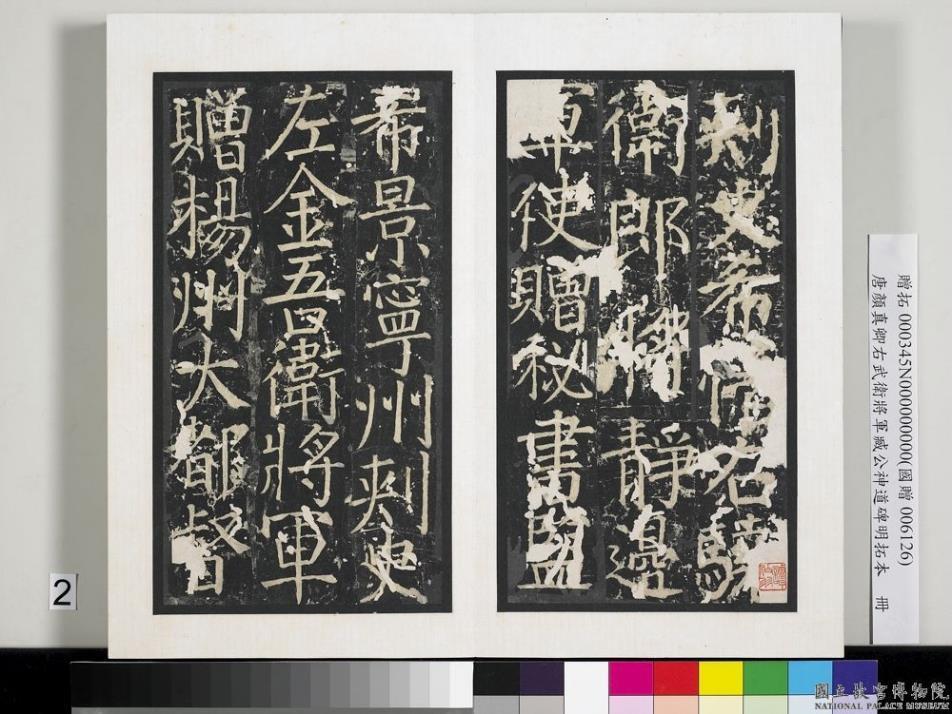 刺史希愔右驍
衛郎將靜邊
軍使贈秘書監
希景寧州刺史
左金吾衛將軍
贈揚州大都督
贈拓 000345N000000000(國贈 006126)
唐顏真卿右武衛將軍臧公神道碑明拓本 冊
2
國立故宮博物院
NATIONAL PALACE MUSEUM